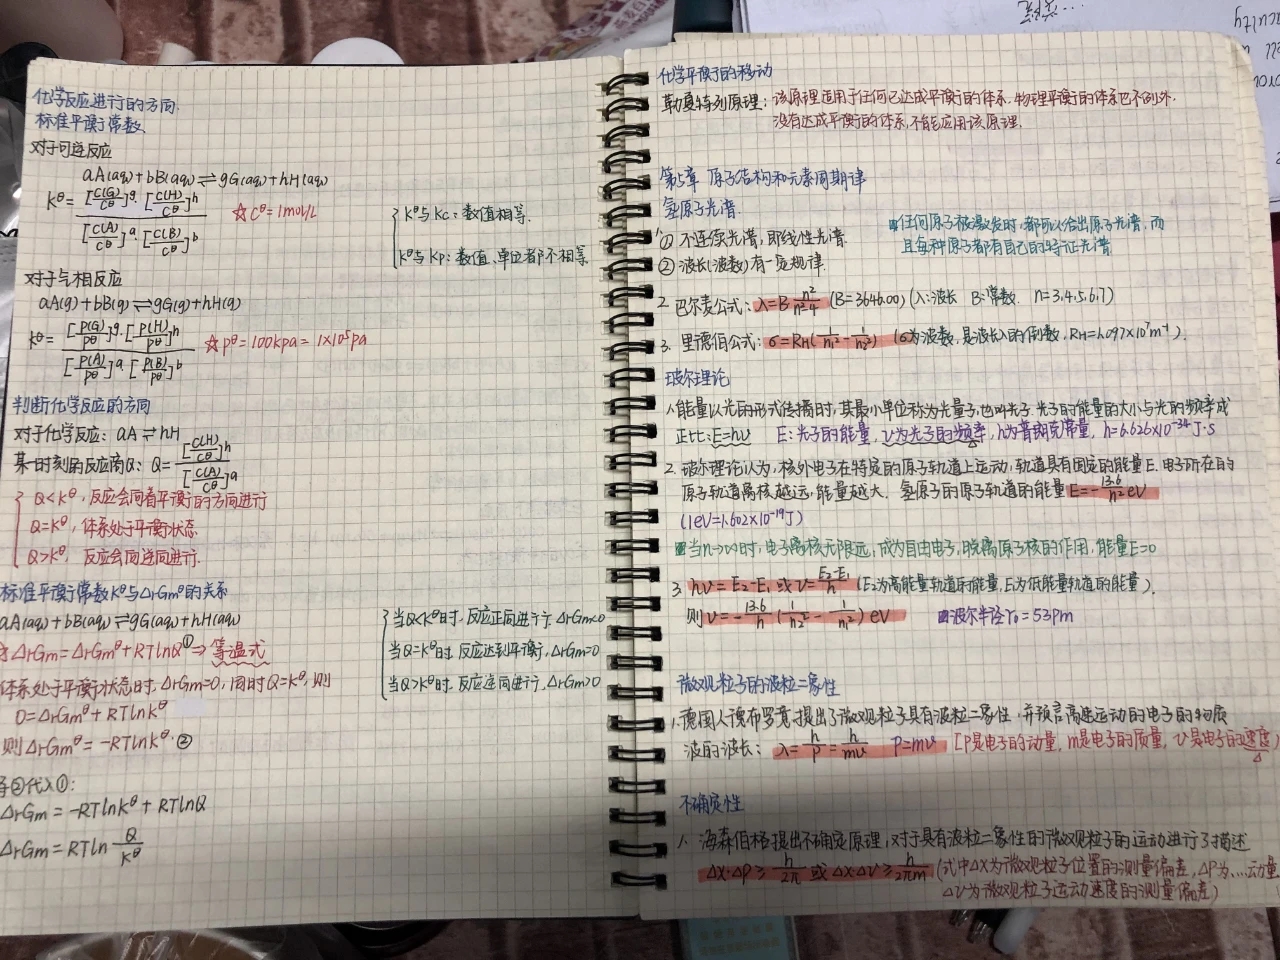 化学反应进行的方向.
标准平衡常数.
对于可逆反应
aA(aq)+bB(aq)⇌gG(aq)+hH(aq)
K^θ= [c(G)/c^θ]^g·[c(H)/c^θ]^h / [c(A)/c^θ]^a·[c(B)/c^θ]^b ☆c^θ=1mol/L
K^θ与Kc:数值相等.
K^θ与Kp:数值、单位都不相等.
对于气相反应
aA(g)+bB(g)⇌gG(g)+hH(g)
K^θ= [p(G)/p^θ]^g·[p(H)/p^θ]^h / [p(A)/p^θ]^a·[p(B)/p^θ]^b ☆p^θ=100kpa=1×10^5pa
判断化学反应的方向
对于化学反应:aA⇌hH
某一时刻的反应商Q:Q= [c(H)/c^θ]^h / [c(A)/c^θ]^a
Q<K^θ,反应会向着平衡的方向进行
Q=K^θ,体系处于平衡状态.
Q>K^θ,反应会向逆向进行.
标准平衡常数K^θ与ΔrGm^θ的关系
aA(aq)+bB(aq)⇌gG(aq)+hH(aq)
ΔrGm=ΔrGm^θ+RTlnQ①⇒等温式
体系处于平衡状态时,ΔrGm=0,同时Q=K^θ,则
0=ΔrGm^θ+RTlnK^θ
则ΔrGm^θ=-RTlnK^θ.②
②代入①:
ΔrGm=-RTlnK^θ+RTlnQ
ΔrGm=RTln Q/K^θ
当Q<K^θ时,反应正向进行,ΔrGm<0
当Q=K^θ时,反应达到平衡,ΔrGm=0
当Q>K^θ时,反应逆向进行,ΔrGm>0
化学平衡的移动
勒夏特列原理:该原理适用于任何已达成平衡的体系,物理平衡的体系也不例外.
没有达成平衡的体系,不能应用该原理.
第5章 原子结构和元素周期律
氢原子光谱.
1.① 不连续光谱,即线性光谱.
② 波长(波数)有一定规律.
任何原子被激发时,都可以给出原子光谱,而
且每种原子都有自己的特征光谱
2. 巴尔麦公式:λ=B n²/n²-4 (B=3646.00)(λ:波长 B:常数. n=3.4.5.6.7)
3. 里德伯公式:σ=RH(1/n₁²-1/n₂²) (σ为波数,是波长λ的倒数,RH=1.097×10^7m^-1).
玻尔理论
1.能量以光的形式传播时,其最小单位称为光量子,也叫光子.光子的能量的大小与光的频率成
正比:E=hν E:光子的能量,ν为光子的频率,h为普朗克常量,h=6.626×10^-34J·S
2. 玻尔理论认为,核外电子在特定的原子轨道上运动,轨道具有固定的能量E.电子所在的
原子轨道离核越远,能量越大.氢原子的原子轨道的能量E=-13.6/n² eV
(1eV=1.602×10^-19J)
当n→∞时,电子离核无限远,成为自由电子,脱离原子核的作用,能量E=0
3. hν=E₂-E₁或ν=E₂-E₁/h (E₂为高能量轨道的能量,E₁为低能量轨道的能量).
则ν=-13.6/h(1/n₂²-1/n₁²)eV 波尔半径r₀=53pm
微观粒子的波粒二象性
1.德国人德布罗意提出了微观粒子具有波粒二象性,并预言高速运动的电子的物质
波的波长:λ=h/P=h/mv P=mv [P是电子的动量,m是电子的质量,v是电子的速度]
不确定性
1. 海森伯格提出不确定原理,对于具有波粒二象性的微观粒子的运动进行了描述
Δx·ΔP≥h/2π 或Δx·Δv≥h/2πm (式中Δx为微观粒子位置的测量偏差,ΔP为....动量
Δv为微观粒子运动速度的测量偏差)